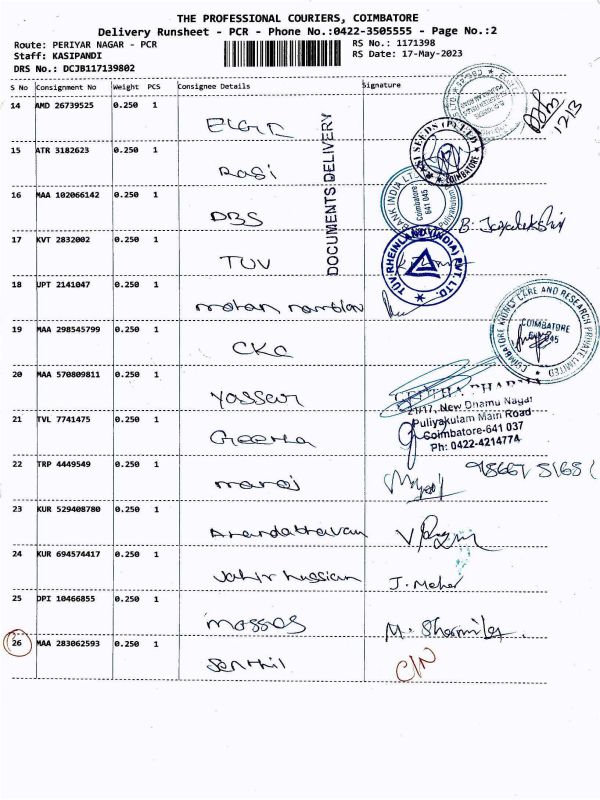 THE PROFESSIONAL COURIERS, COIMBATORE
Delivery Runsheet - PCR - Phone No.:0422-3505555 - Page No.:2
Route: PERIYAR NAGAR - PCR
Staff: KASIPANDI
DRS No.: DCJB117139802
RS No.: 1171398
RS Date: 17-May-2023
S No Consignment No Weight PCS Consignee Details Signature
14 AMD 26739525 0.250 1 ELGI
1213
15 ATR 3182623 0.250 1 Rasi
SEEDS (P) LTD
COIMBATORE
16 MAA 102066142 0.250 1 DBS
BANK INDIA LTD
Coimbatore
641 045
Puliyakulam
B. Jayalakshmi
17 KVT 2832002 0.250 1 TUV
TUV RHEINLAND (INDIA) PVT. LTD.
DOCUMENTS DELIVERY
18 UPT 2141047 0.250 1 mohan nambiar
19 MAA 298545799 0.250 1 CKC
COIMBATORE KIDNEY CARE AND RESEARCH PRIVATE LIMITED
COIMBATORE
641 045
20 MAA 570809811 0.250 1 Yasser
21 TVL 7741475 0.250 1 Geetha
GEETHA PHARMA
21/17, New Dhamu Nagar
Puliyakulam Main Road
Coimbatore-641 037
Ph: 0422-4214774
22 TRP 4449549 0.250 1 manoj
23 KUR 529408780 0.250 1 Anandathavan
24 KUR 694574417 0.250 1 Jahir hussian
J. Meher
25 DPI 10466855 0.250 1 mossos
M. Sharmila
26 MAA 283062593 0.250 1 Senthil
C/N